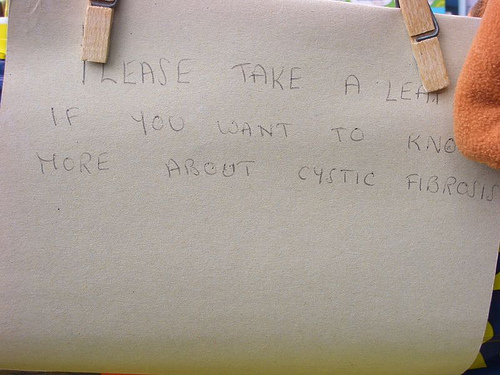 PLEASE TAKE A LEAF
IF YOU WANT TO KNO
MORE ABOUT CYSTIC FIBROSIS